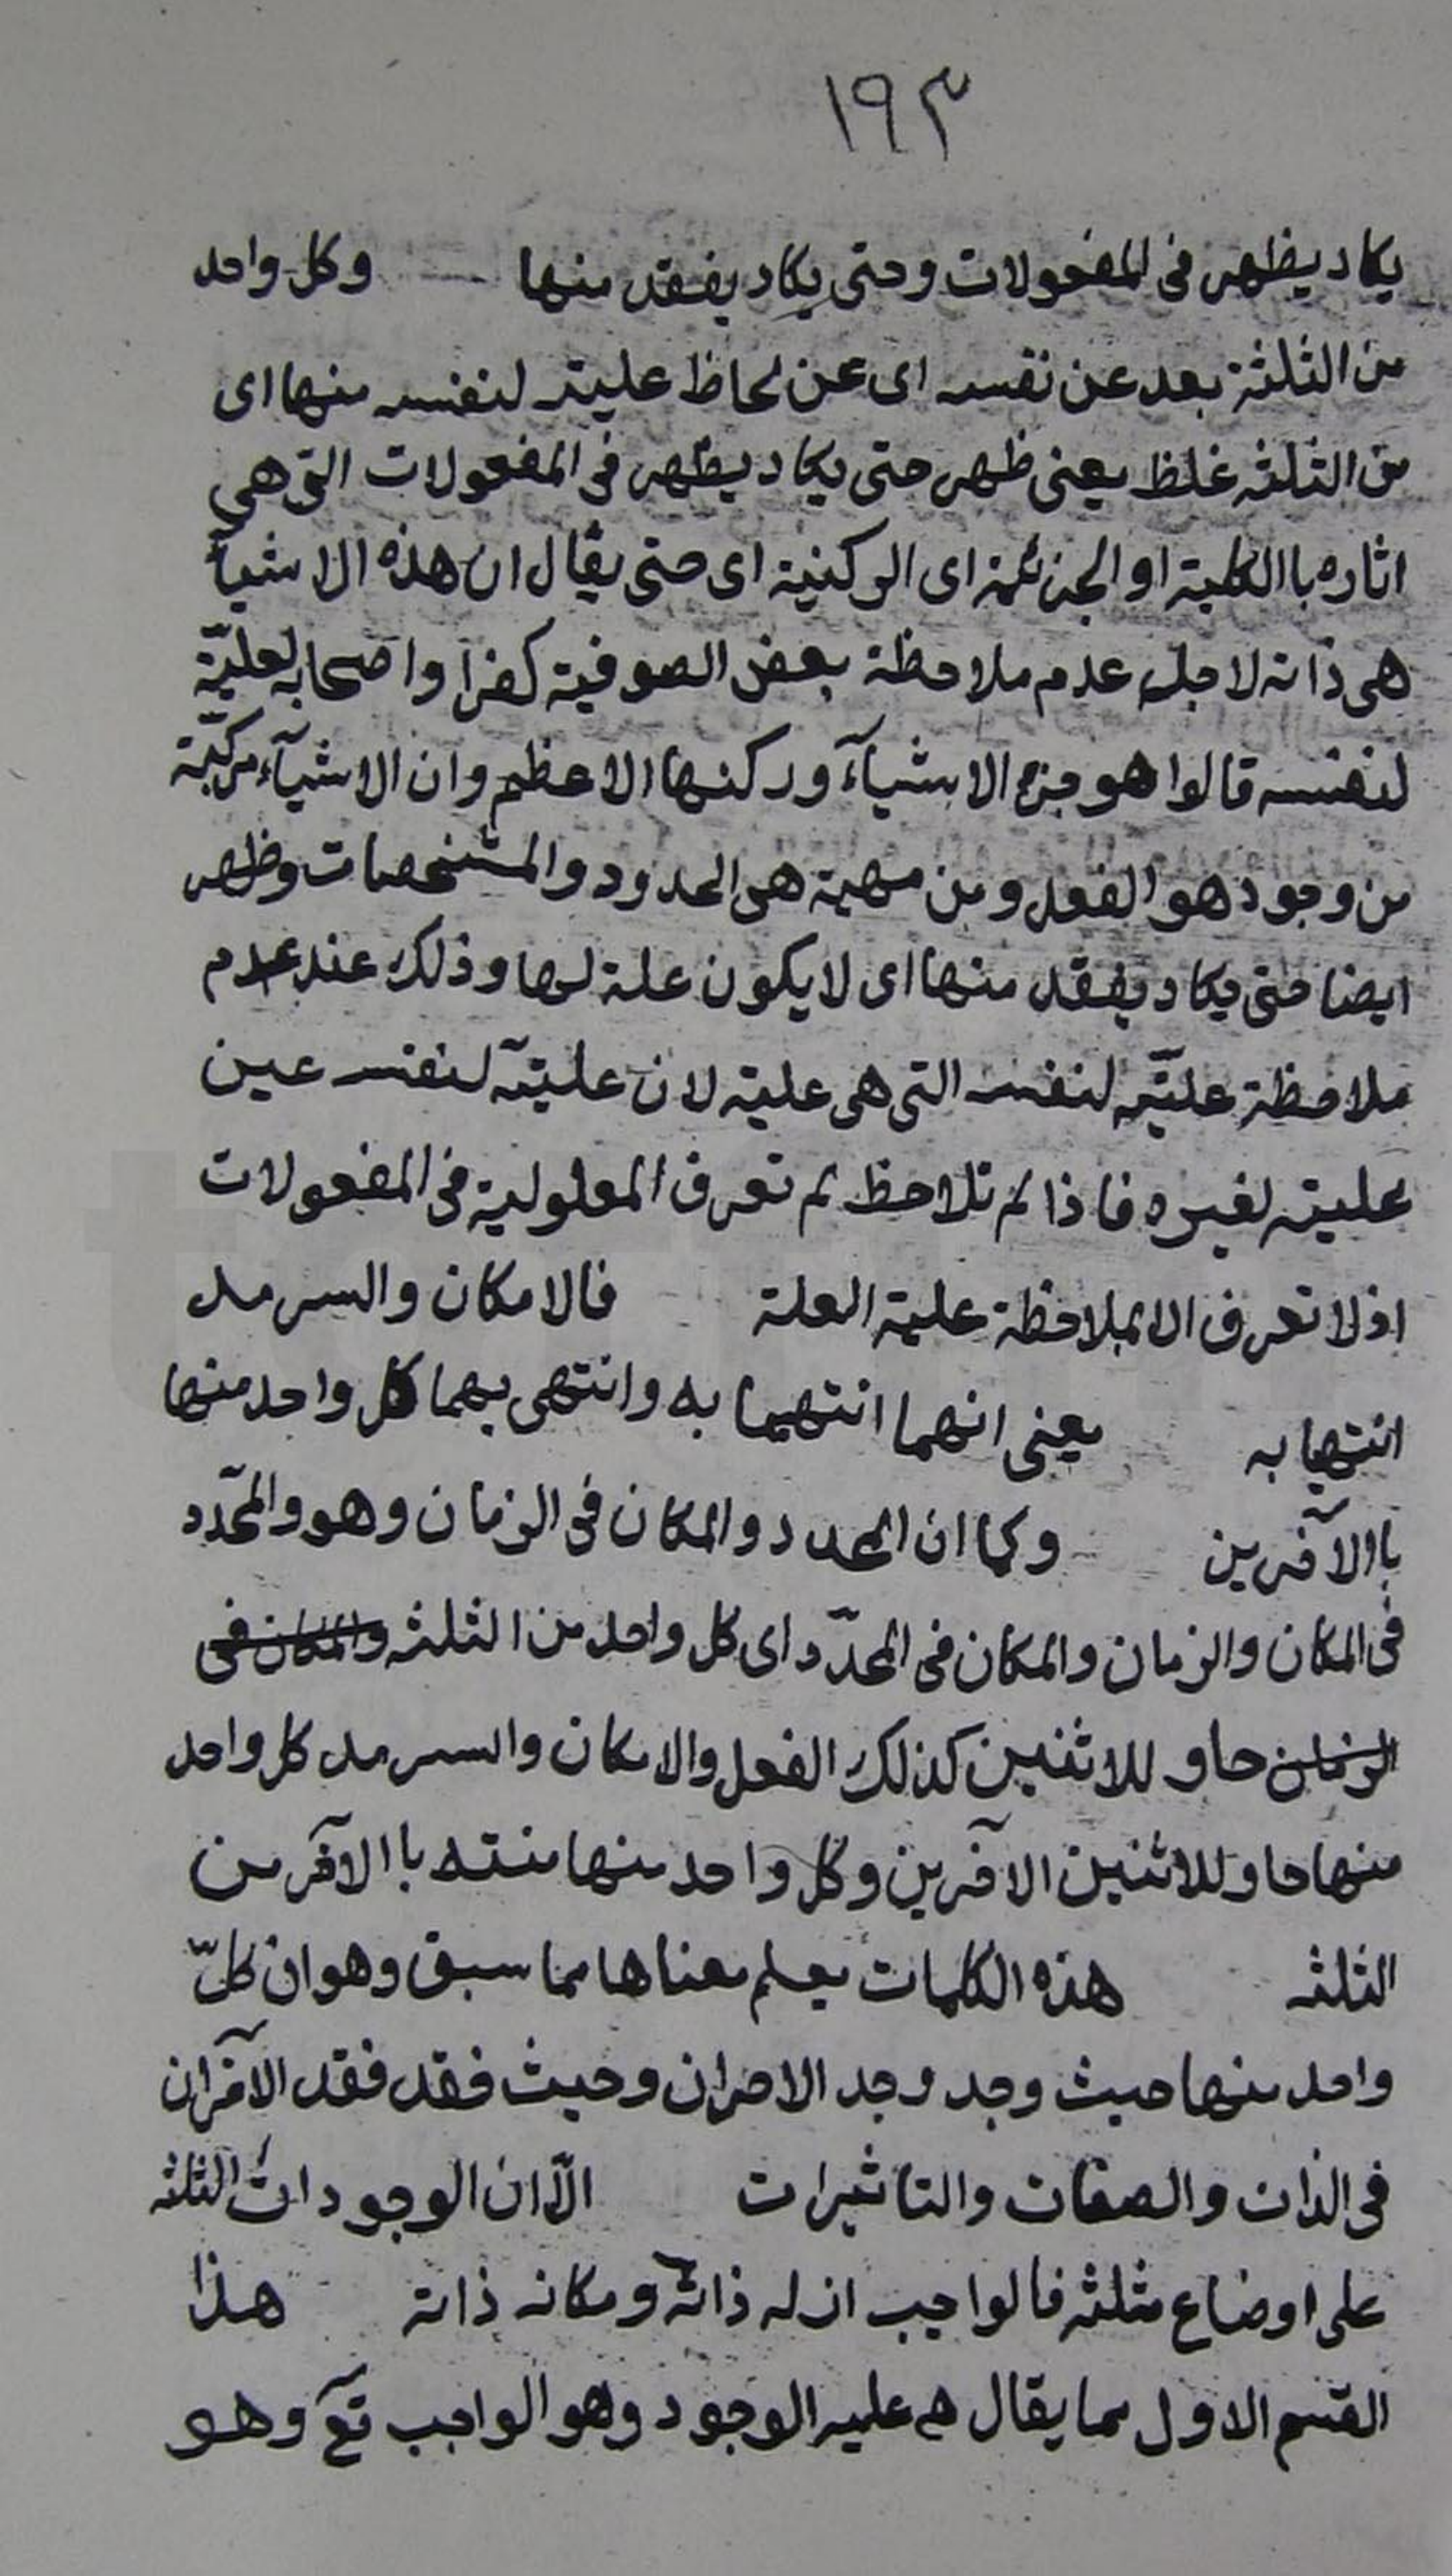 ١٩٣
يكاد يظهر فى المفعولات وحتى يكاد يفقد منها وكل واحد
من الثلثة بعد عن نفسه اى عن لحاظ عليته لنفسه منها اى
من الثلثه غلظ يعنى ظهر حتى يكاد يظهر فى المفعولات التى هى
اثاره باالكلية او الجزئية اى الركنية اى حتى يقال ان هذه الاشيآء
هى ذاته لاجل عدم ملاحظة بعض الصوفية كفرا واصحابه لعليّة
لنفسه قالوا هو جزء الاشيآء وركنها الاعظم وان الاشيآء مركّبة
من وجود هو الفعل ومن مهية هى الحدود والمشخصات وظهر
ايضا حتى يكاد يفقد منها اى لا يكون علة لها وذلك عند عدم
ملاحظة عليّته لنفسه التى هى علية لان عليّته لنفسه عين
عليته لغيره فاذا لم تلاحظ لم تعرف المعلولية فى المفعولات
اذ لا تعرف الا بملاحظة علية العلة فالامكان والسرمد
انتهيا به يعنى انهما انتهيا به وانتهى بهما كل واحد منها
باالآخرين وكما ان المحدد والمكان فى الزمان وهو والمحدّد
فى المكان والزمان والمكان فى المحدّد اى كل واحد من الثلثه والمكان فى
الزمان حاو للاثنين كذلك الفعل والامكان والسرمد كل واحد
منها حاو للاثنين الآخرين وكل واحد منها منته باالآخر من
الثلثه هذه الكلمات يعلم معناها مما سبق وهو ان كلّ
واحد منها حيث وجد وجد الاخران وحيث فقد فقد الآخران
فى الذات والصفات والتاثيرات الّا ان الوجودات الثلثه
على اوضاع مثلثه فالواجب ازله ذاته ومكانه ذاته هذا
القسم الاول مما يقال عليه الوجود وهو الواجب تعٓ وهو